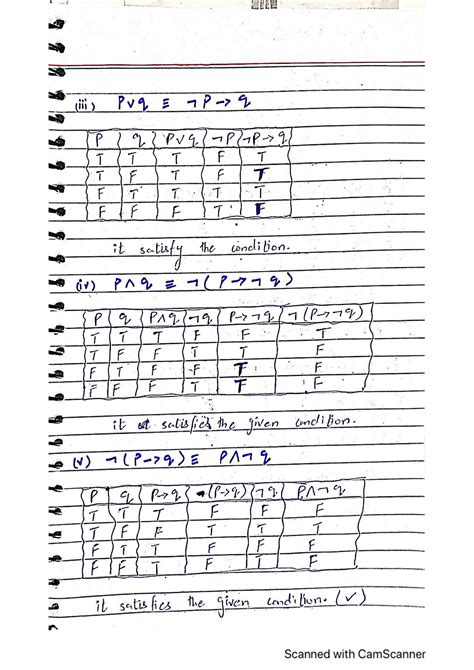 (iii) P∨q ≡ ¬P→q
P q P∨q ¬P ¬P→q
T T T F T
T F T F T
F T T T T
F F F T F
it satisfy the condition.
(iv) P∧q ≡ ¬(P→¬q)
P q P∧q ¬q P→¬q ¬(P→¬q)
T T T F F T
T F F T T F
F T F F T F
F F F T T F
it satisfies the given condition.
(v) ¬(P→q) ≡ P∧¬q
P q P→q ¬(P→q) ¬q P∧¬q
T T T F F F
T F F T T T
F T T F F F
F F T F T F
it satisfies the given condition. (✓)
Scanned with CamScanner